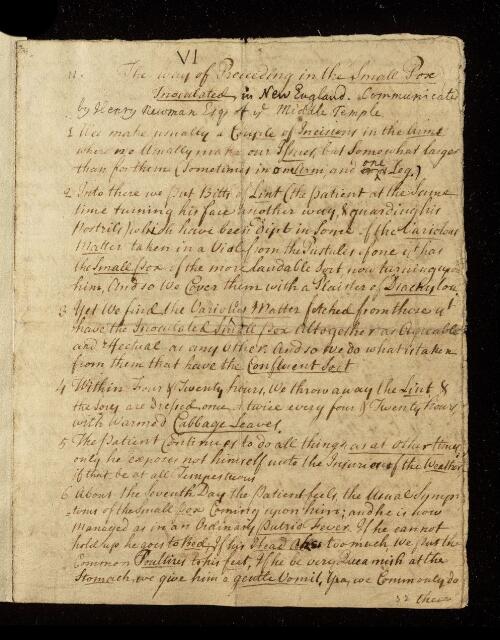 VI
11. The way of Proceeding in the Small Pox
Inoculated in New England. Communicate
by Henry Newman Esqr of ye Middle Temple
1 We make usually a Couple of Incisions in the Arms
where we Usually make our Issues, but Somewhat larger
than for them (Sometimes in one Arm, and one Leg.)
2 Into these we put Bitts of Lint (the patient at the Same
time turning his face another way, & guarding his
Nostrils) which have been dipt in Some of the Variolous
Matter taken in a Vial from the Pustules of one yt has
the Small Pox of the more laudable Sort now turning upon
him, And so We Cover them with a Plaister of Diachylon
3 Yet We find the Variolous Matter fetched from those yt
have the Inoculated Small Pox altogether as Agreable
and effectual as any other. And so we do what is taken
from them that have the Confluent Sort
4 Within Four & Twenty hours, We throw away the Lint &
the sores are Dressed once or twice every four & Twenty hours
with warmed Cabbage Leaves.
5 The patient Continues to do all things as at other times
only he exposes not himself unto the Injuries of the Weather
if that be at all Tempestuous
6 About the Seventh Day the patient feels the Usual Symp-
toms of the Small Pox Coming upon him; and he is now
Managed as in an Ordinary putrid Fever. If he cannot
hold up he goes to Bed, If his Head Ake too much we put the
Common Poultices to his feet, If he be very Queamish at the
Stomach, we give him a gentle Vomit, Yea, we Commonly do
32 these